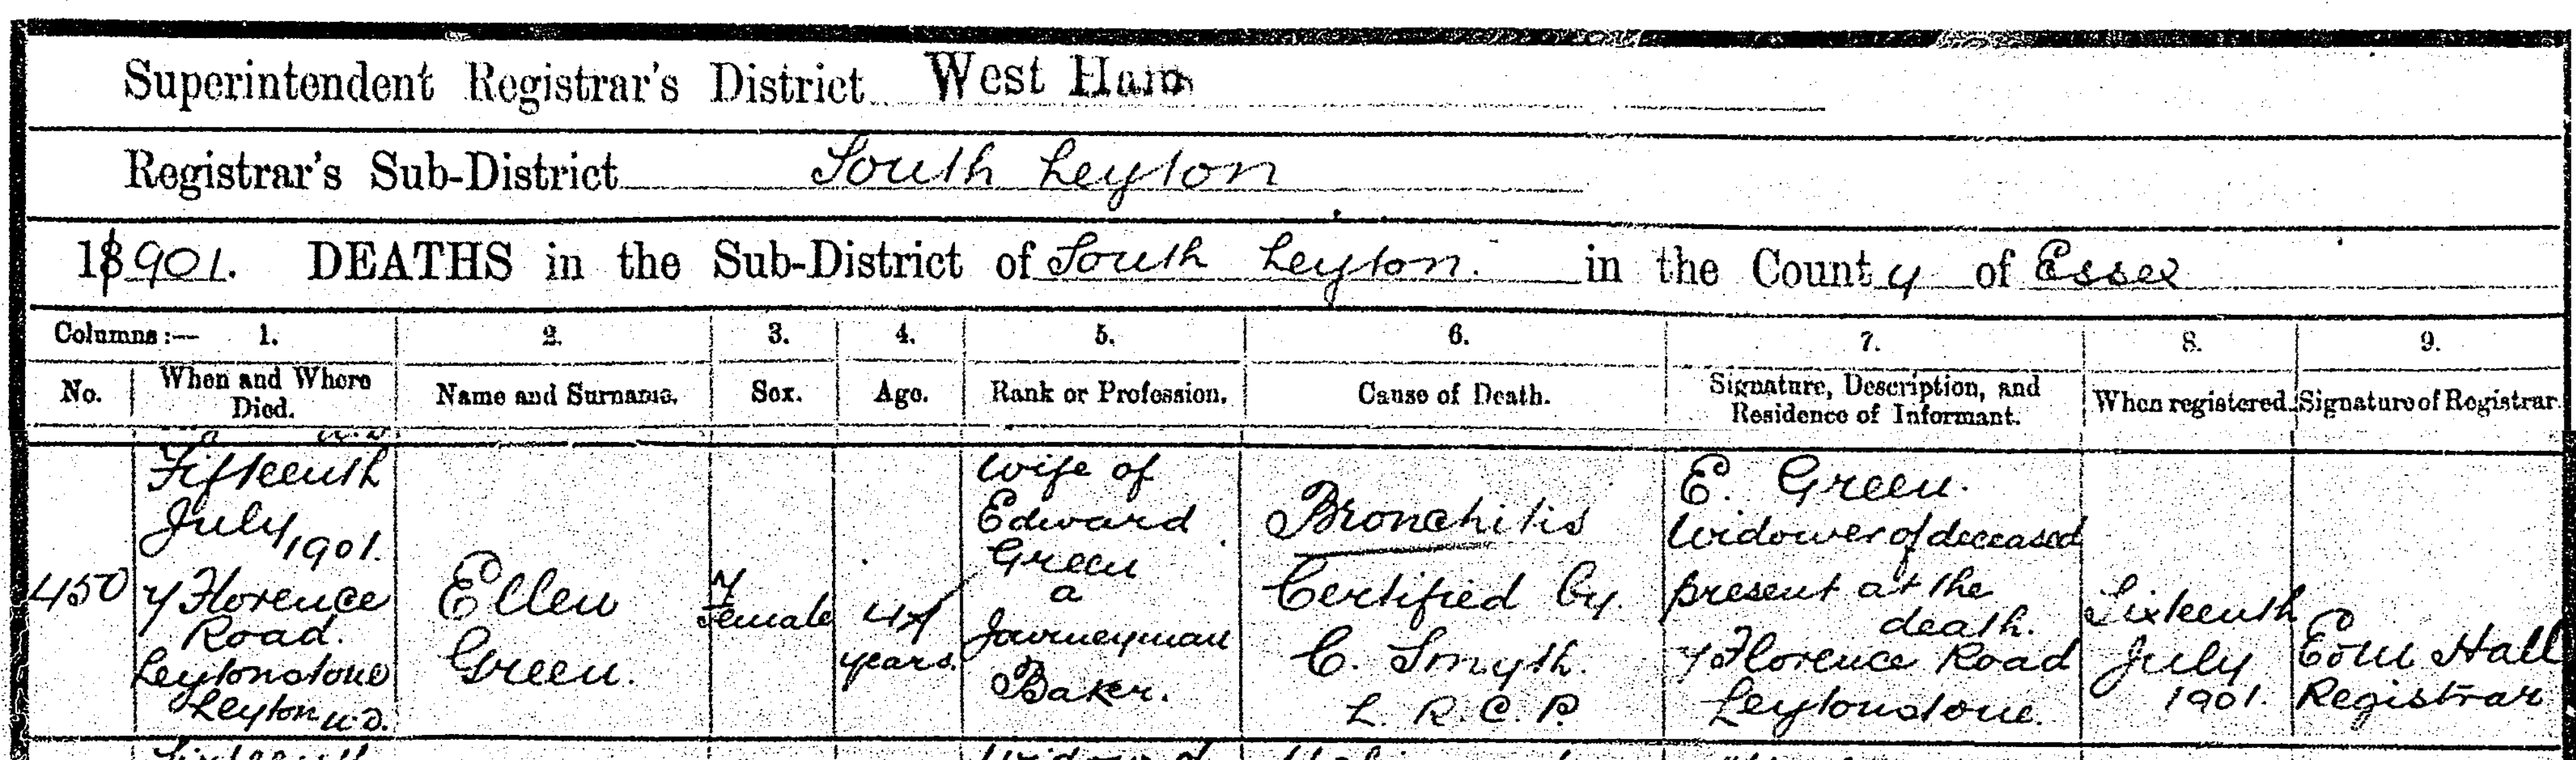 Superintendent Registrar's District West Ham
Registrar's Sub-District South Leyton
18901. DEATHS in the Sub-District of South Leyton. in the County of Essex
Columns:— 1. 2. 3. 4. 5. 6. 7. 8. 9.
No.
When and Where
Died.
Name and Surname.
Sex.
Age.
Rank or Profession.
Cause of Death.
Signature, Description, and
Residence of Informant.
When registered.
Signature of Registrar
450
Fifteenth
July
1901.
7 Florence
Road.
Leytonstone
Leyton U.D.
Ellen
Green.
Female
years.
Wife of
Edward
Green
a
Journeyman
Baker.
Bronchitis
Certified by
C. Smyth.
L. R. C. P.
E. Green.
Widower of deceased
present at the
death.
7 Florence Road
Leytonstone.
Sixteenth
July
1901.
Edm Hall
Registrar